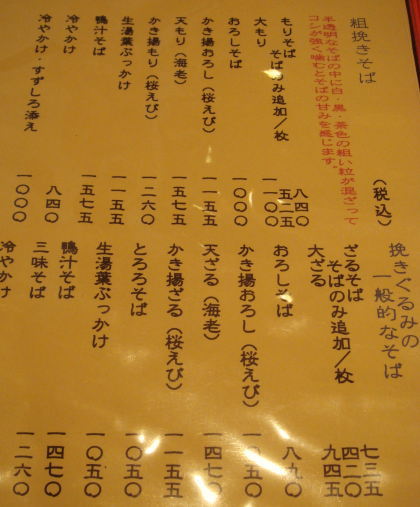 粗挽きそば
半透明なそばの中に白・黒・茶色の粗い粒が混ざって
コシが強く噛むとそばの甘みを感じます。
(税込)
もりそば 八四〇
そばのみ追加/枚 五二五
大もり 一一〇〇
おろしそば 一〇〇〇
かき揚おろし(桜えび) 一一五五
天もり(海老) 一五七五
かき揚もり(桜えび) 一二六〇
生湯葉ぶっかけ 一一五五
鴨汁そば 一五七五
冷やかけ 八四〇
冷やかけ・すずしろ添え 一〇〇〇
挽きぐるみの
一般的なそば
ざるそば 七三五
そばのみ追加/枚 四二〇
大ざる 九四五
おろしそば 八九〇
かき揚おろし(桜えび) 一〇五〇
天ざる(海老) 一四七〇
かき揚ざる(桜えび) 一一五五
とろろそば 一〇五〇
生湯葉ぶっかけ 一〇五〇
鴨汁そば 一四七〇
三味そば 一二六〇
冷やかけ